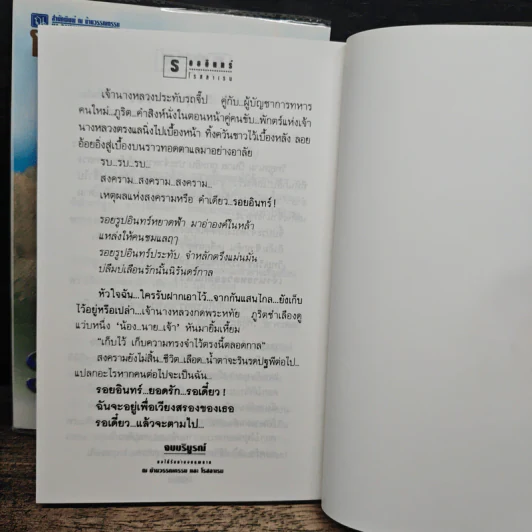 สำนักพิมพ์ ณ บ้านวรรณกรรม
รอยอินทร์
โรสลาเรน
เจ้านางหลวงประทับรถจี๊ป คู่กับ..ผู้บัญชาการทหาร
คนใหม่..ภูริต..คำสิงห์นั่งในตอนหน้าคู่คนขับ..พักตร์แห่งเจ้า
นางหลวงตรงแลนิ่งไปเบื้องหน้า ทิ้งควันขาวไว้เบื้องหลัง ลอย
อ้อยอิ่งสู่เบื้องบนราวทอดตาแลมาอย่างอาลัย
รบ..รบ..รบ..
สงคราม..สงคราม..สงคราม..
เหตุผลแห่งสงครามหรือ คำเดียว..รอยอินทร์!
รอยรูปอินทร์หยาดฟ้า มาอ่าองค์ในหล้า
แหล่งให้คนชมแลฤๅ
รอยรูปอินทร์ประทับ จำหลักตรึงแม่นมั่น
ปลื้มบ่เลือนรักนั้นนิรันดร์กาล
หัวใจฉัน...ใครรับฝากเอาไว้...จากกันแสนไกล...ยังเก็บ
ไว้อยู่หรือเปล่า...เจ้านางหลวงกดพระหทัย ภูริตชำเลืองดู
แว่บหนึ่ง 'น้อง..นาย..เจ้า' หันมายิ้มเหี้ยม
"เก็บไว้ เก็บความทรงจำไว้ตรงนี้ตลอดกาล"
สงครามยังไม่สิ้น..ชีวิต..เลือด..น้ำตาจะรินรดปฐพีต่อไป..
แปลกอะไรหากคนต่อไปจะเป็นฉัน..
รอยอินทร์...ยอดรัก...รอเดี๋ยว!
ฉันจะอยู่เพื่อเวียงสรองของเธอ
รอเดี๋ยว...แล้วจะตามไป...
จบบริบูรณ์
ณ บ้านวรรณกรรม และ โรสลาเรน